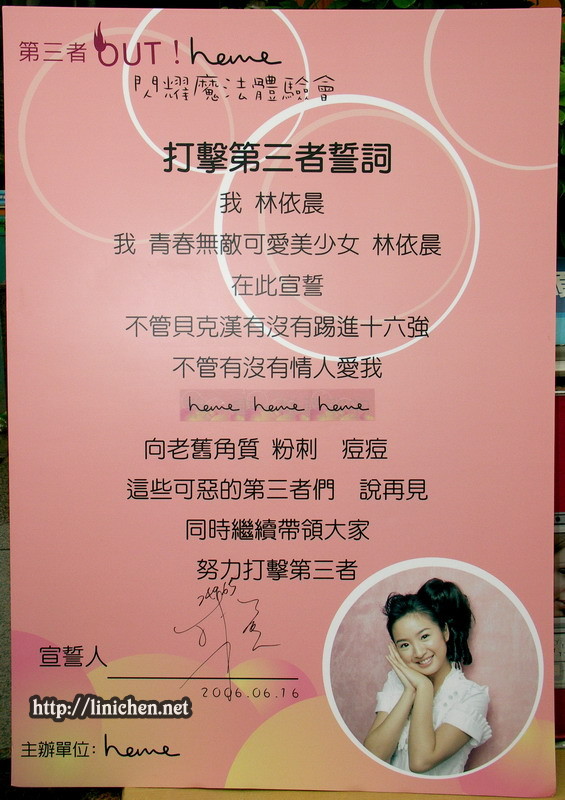 第三者 OUT! heme
閃耀魔法體驗會
打擊第三者誓詞
我 林依晨
我 青春無敵可愛美少女 林依晨
在此宣誓
不管貝克漢有沒有踢進十六強
不管有沒有情人愛我
heme heme heme
向老舊角質 粉刺 痘痘
這些可惡的第三者們 說再見
同時繼續帶領大家
努力打擊第三者
宣誓人
2006.06.16
http://linichen.net
主辦單位: heme